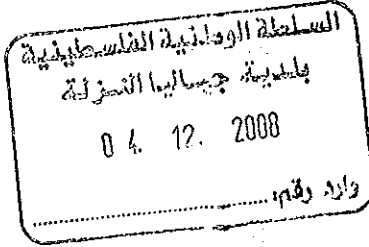 السلطة الوطنية الفلسطينية
بلدية جباليا النزلة
04. 12. 2008
وارد رقم: ........................